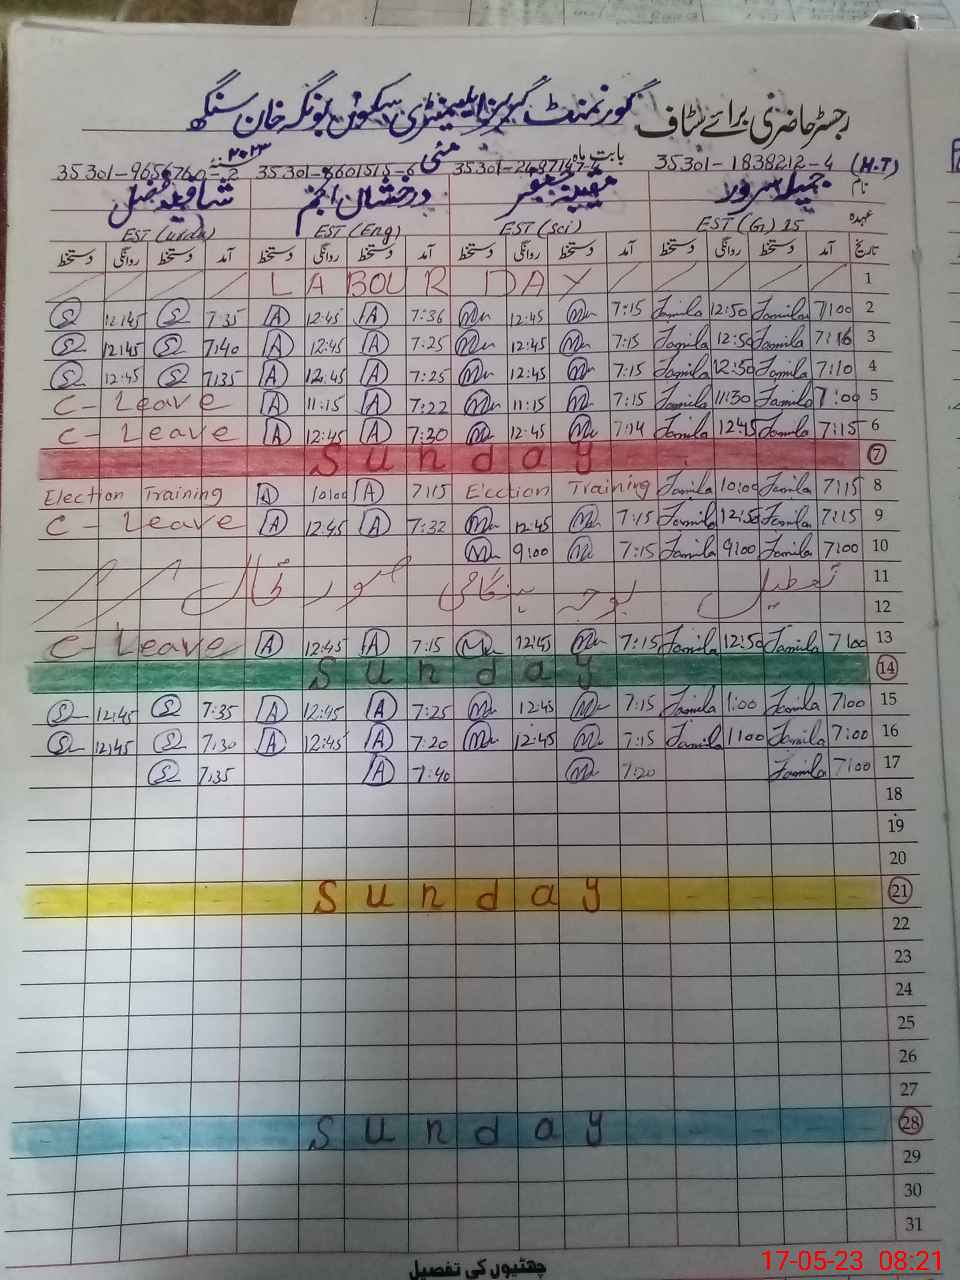 رجسٹر حاضری برائے سٹاف گورنمنٹ گرلز ایلیمنٹری سکول بونگہ خان سنگھ
بابت ماہ مئی ۲۰۲۳ء
35301-1838212-4 (H.T) 35301-8601515-6
نام جمیلہ سرور درخشاں انجم
عہدہ EST (G) 15 EST (Sci) EST (Eng) EST (Urdu)
تاریخ آمد دستخط روانگی دستخط آمد دستخط روانگی دستخط آمد دستخط روانگی دستخط آمد دستخط روانگی دستخط
LABOUR DAY 1
12:45 7:35 A 12:45 A 7:36 12:45 7:15 Jamila 12:50 Jamila 7:00 2
12:45 7:40 A 12:45 A 7:25 12:45 7:15 Jamila 12:50 Jamila 7:16 3
12:45 7:35 A 12:45 A 7:25 12:45 7:15 Jamila 12:50 Jamila 7:10 4
C-Leave A 11:15 A 7:22 11:15 7:15 Jamila 11:30 Jamila 7:00 5
C-Leave A 12:45 A 7:30 12:45 7:14 Jamila 12:45 Jamila 7:15 6
Sunday 7
Election Training A 10:00 A 7:15 Election Training Jamila 10:00 Jamila 7:15 8
C-Leave A 12:45 A 7:32 12:45 7:15 Jamila 12:50 Jamila 7:15 9
9:00 7:15 Jamila 9:00 Jamila 7:00 10
تعطیل بوجہ ہنگامی صورتحال 11
12
C-Leave A 12:45 A 7:15 12:45 7:15 Jamila 12:50 Jamila 7:00 13
Sunday 14
12:45 7:35 A 12:45 A 7:25 12:45 7:15 Jamila 1:00 Jamila 7:00 15
12:45 7:30 A 12:45 A 7:20 12:45 7:15 Jamila 1:00 Jamila 7:00 16
7:35 A 7:40 7:20 Jamila 7:00 17
18
19
20
Sunday 21
22
23
24
25
26
27
Sunday 28
29
30
31
چھٹیوں کی تفصیل
17-05-23 08:21